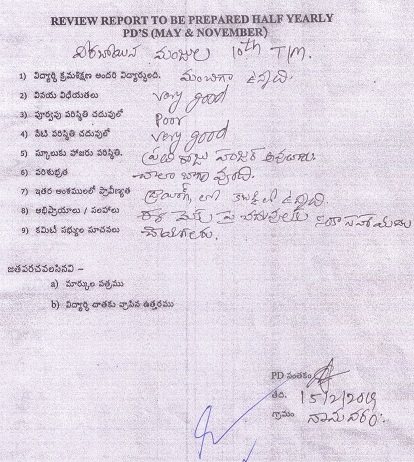 REVIEW REPORT TO BE PREPARED HALF YEARLY
PD'S (MAY & NOVEMBER)
మంజుల 10th T/M.
1) విద్యార్థి క్రమశిక్షణ అందరి విద్యార్థులది. మంచిగా ఉన్నది.
2) విషయ విధేయతలు very good
3) పూర్వపు పరిస్థితి చదువులో Poor
4) నేటి పరిస్థితి చదువులో very good
5) స్కూలుకు హాజరు పరిస్థితి. ప్రతి రోజు హాజర్ అవుతారు.
6) పరిశుభ్రత చాలా బాగా వుంది.
7) ఇతర అంశములలో ప్రావీణ్యత డ్రాయింగ్, లో ఉన్నది
8) అభిప్రాయాలు / సలహాలు
9) కమిటీ సభ్యుల సూచనలు
జతపరచవలసినవి –
a) మార్కుల పత్రము
b) విద్యార్థి దాతకు వ్రాసిన ఉత్తరము
PD సంతకం
తేది. 15/2/2019
గ్రామం